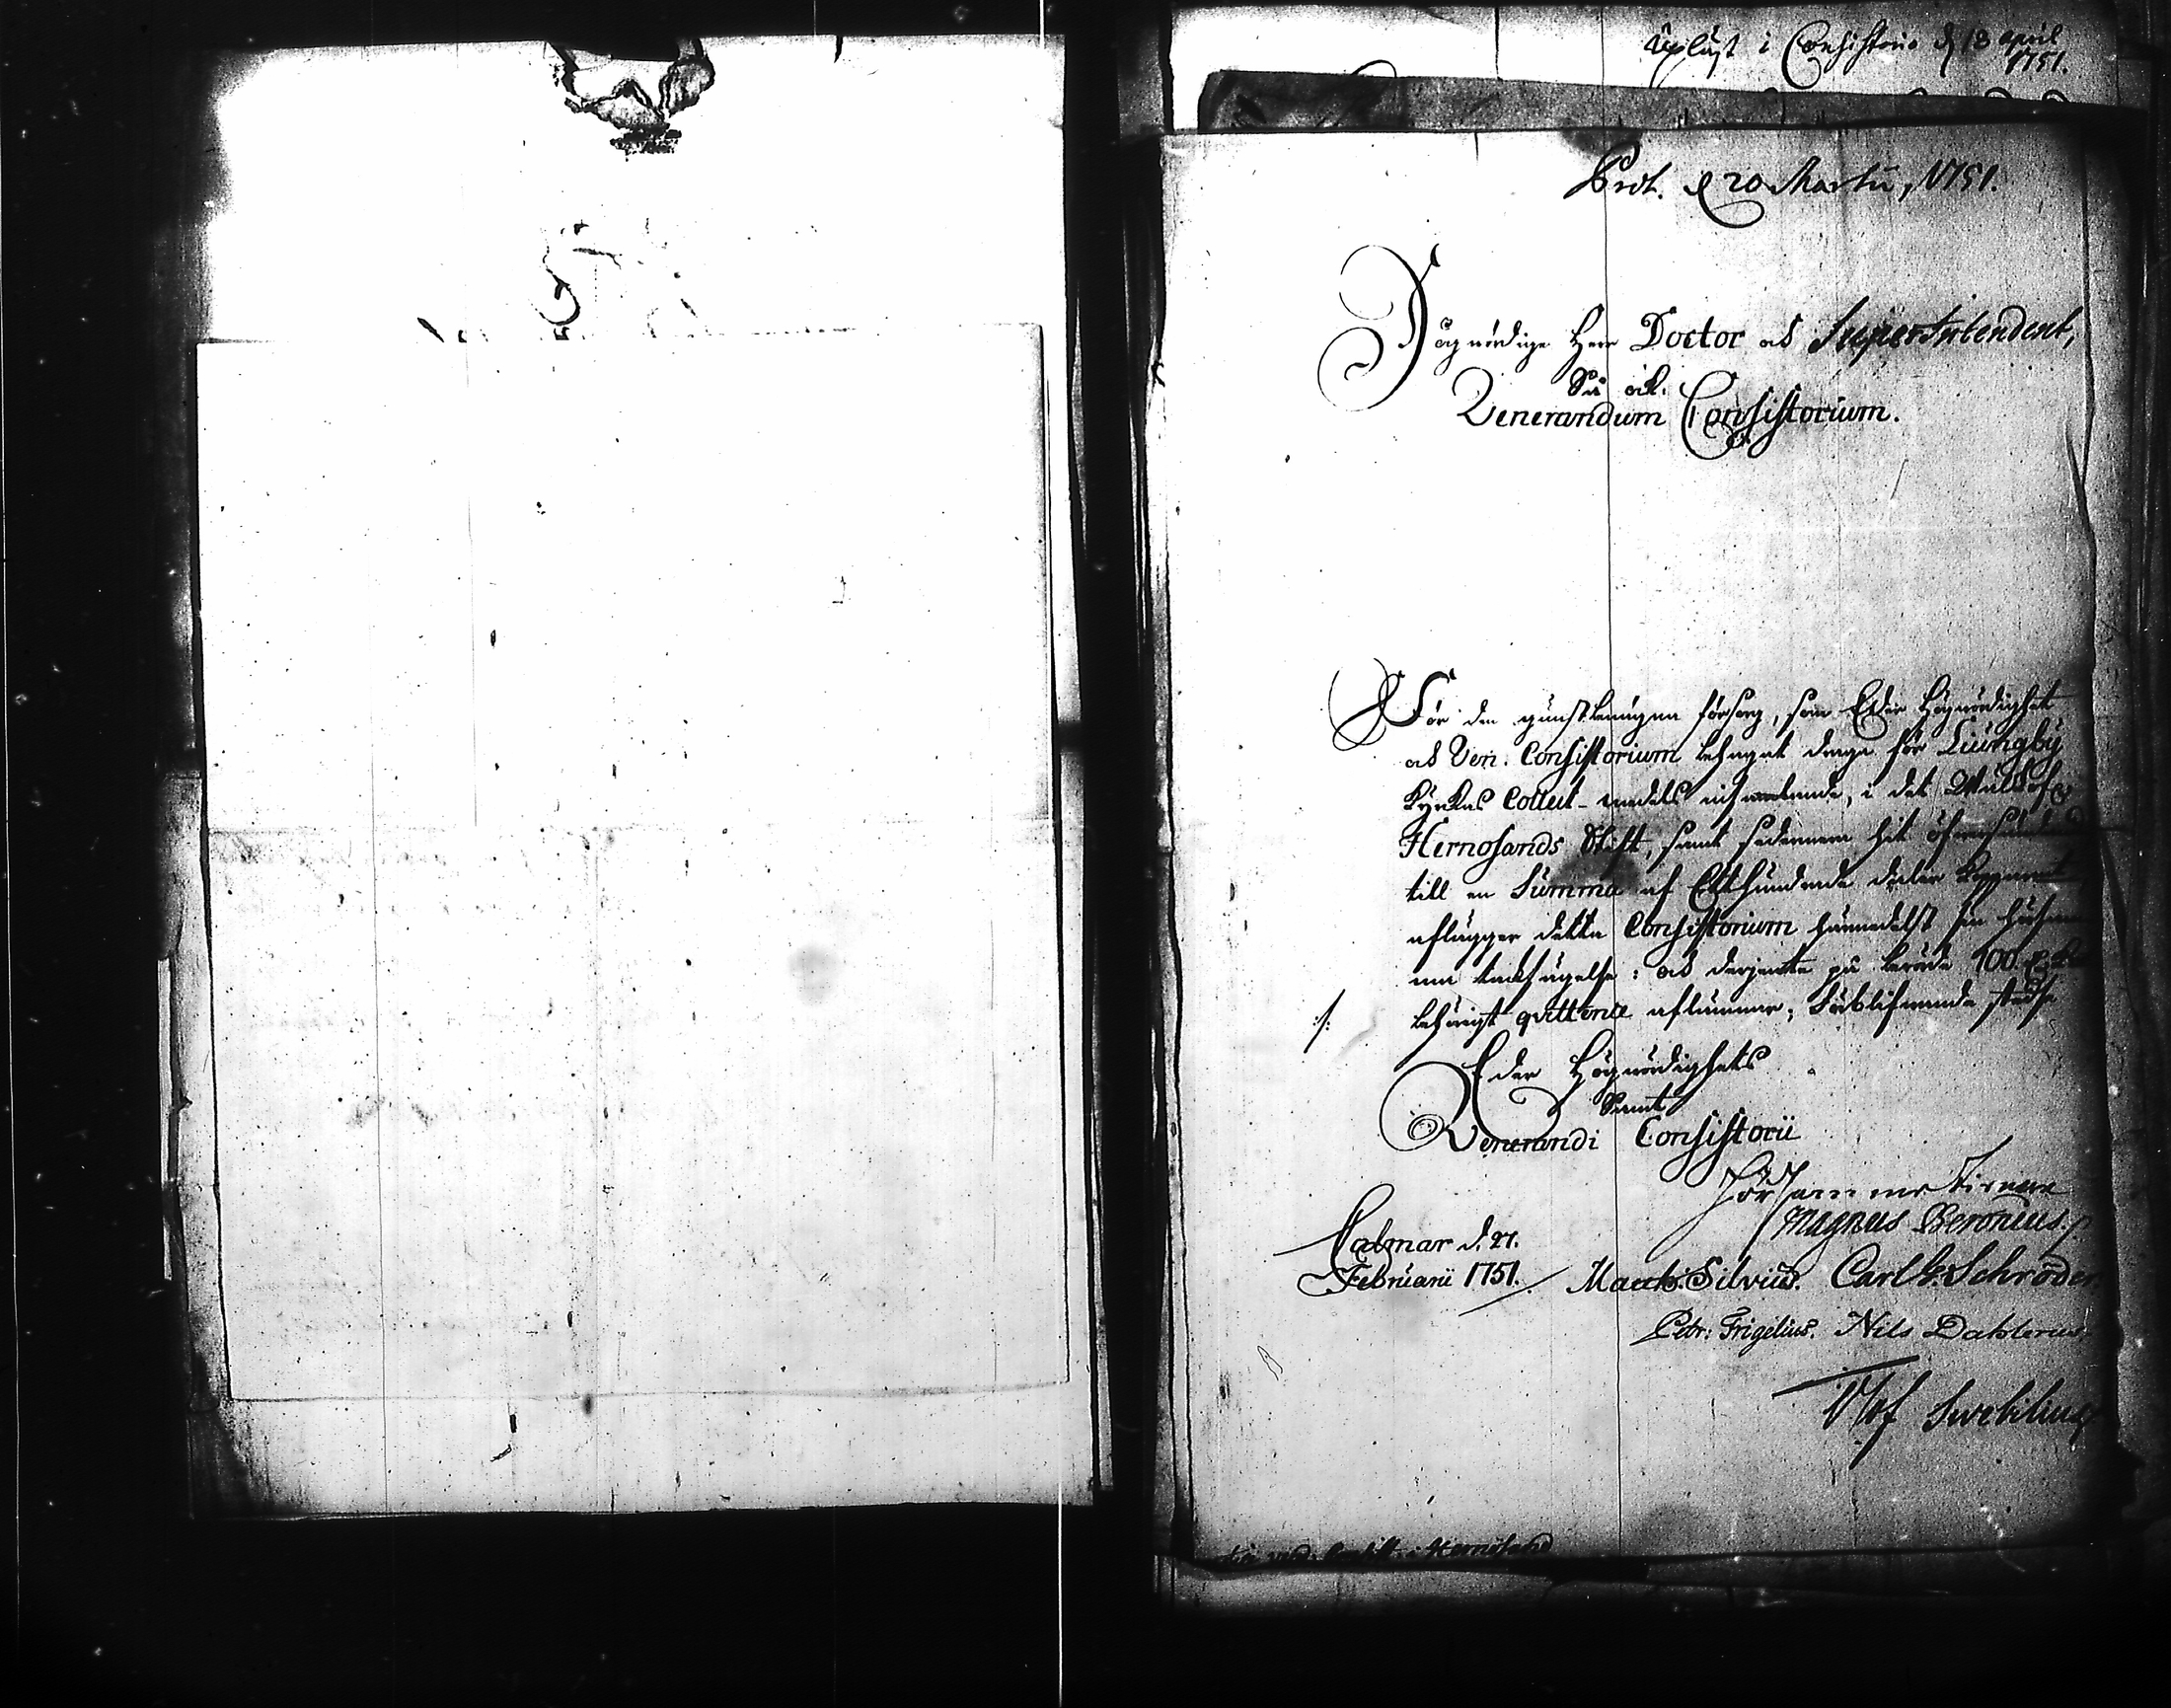 Upläst i Consistorio d 18 april
1751.
Prot. d 20 Martii, 1751.
Högwördige Herr Doctor och Superintendent,
Så ock
Venerandum Consistorium.
För den gunstbenägna försorg, som Eder Högwördighet
och Ven. Consistorium behagat draga för Liungby
Kyrkas Collect-medels insamlande, i det
Hernosands Stift, samt sedermera hit
till en Summa af Etthundrade daler Kopparmt
aflägger detta Consistorium härmedelst sin
tacksägelse: och derjemte på berörde 100
behörigt qvittence aflämnar; Förblifwande städse
Eder Högwördighets
Samt
Venerandi Consistorii
Hörsamme Tienare
Magnus Beronius.
Calmar d. 27.
Februarii 1751.
Silvius. Carl G. Schröder
Petr: Frigelius. Nils Dahlerus
Olof Swebilius
Consist. i Hernösand